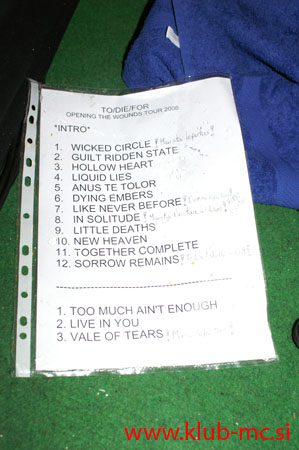 TO/DIE/FOR
OPENING THE WOUNDS TOUR 2006
*INTRO*
1. WICKED CIRCLE
2. GUILT RIDDEN STATE
3. HOLLOW HEART
4. LIQUID LIES
5. ANUS TE TOLOR
6. DYING EMBERS
7. LIKE NEVER BEFORE
8. IN SOLITUDE
9. LITTLE DEATHS
10. NEW HEAVEN
11. TOGETHER COMPLETE
12. SORROW REMAINS
1. TOO MUCH AIN'T ENOUGH
2. LIVE IN YOU
3. VALE OF TEARS
www.klub-mc.si